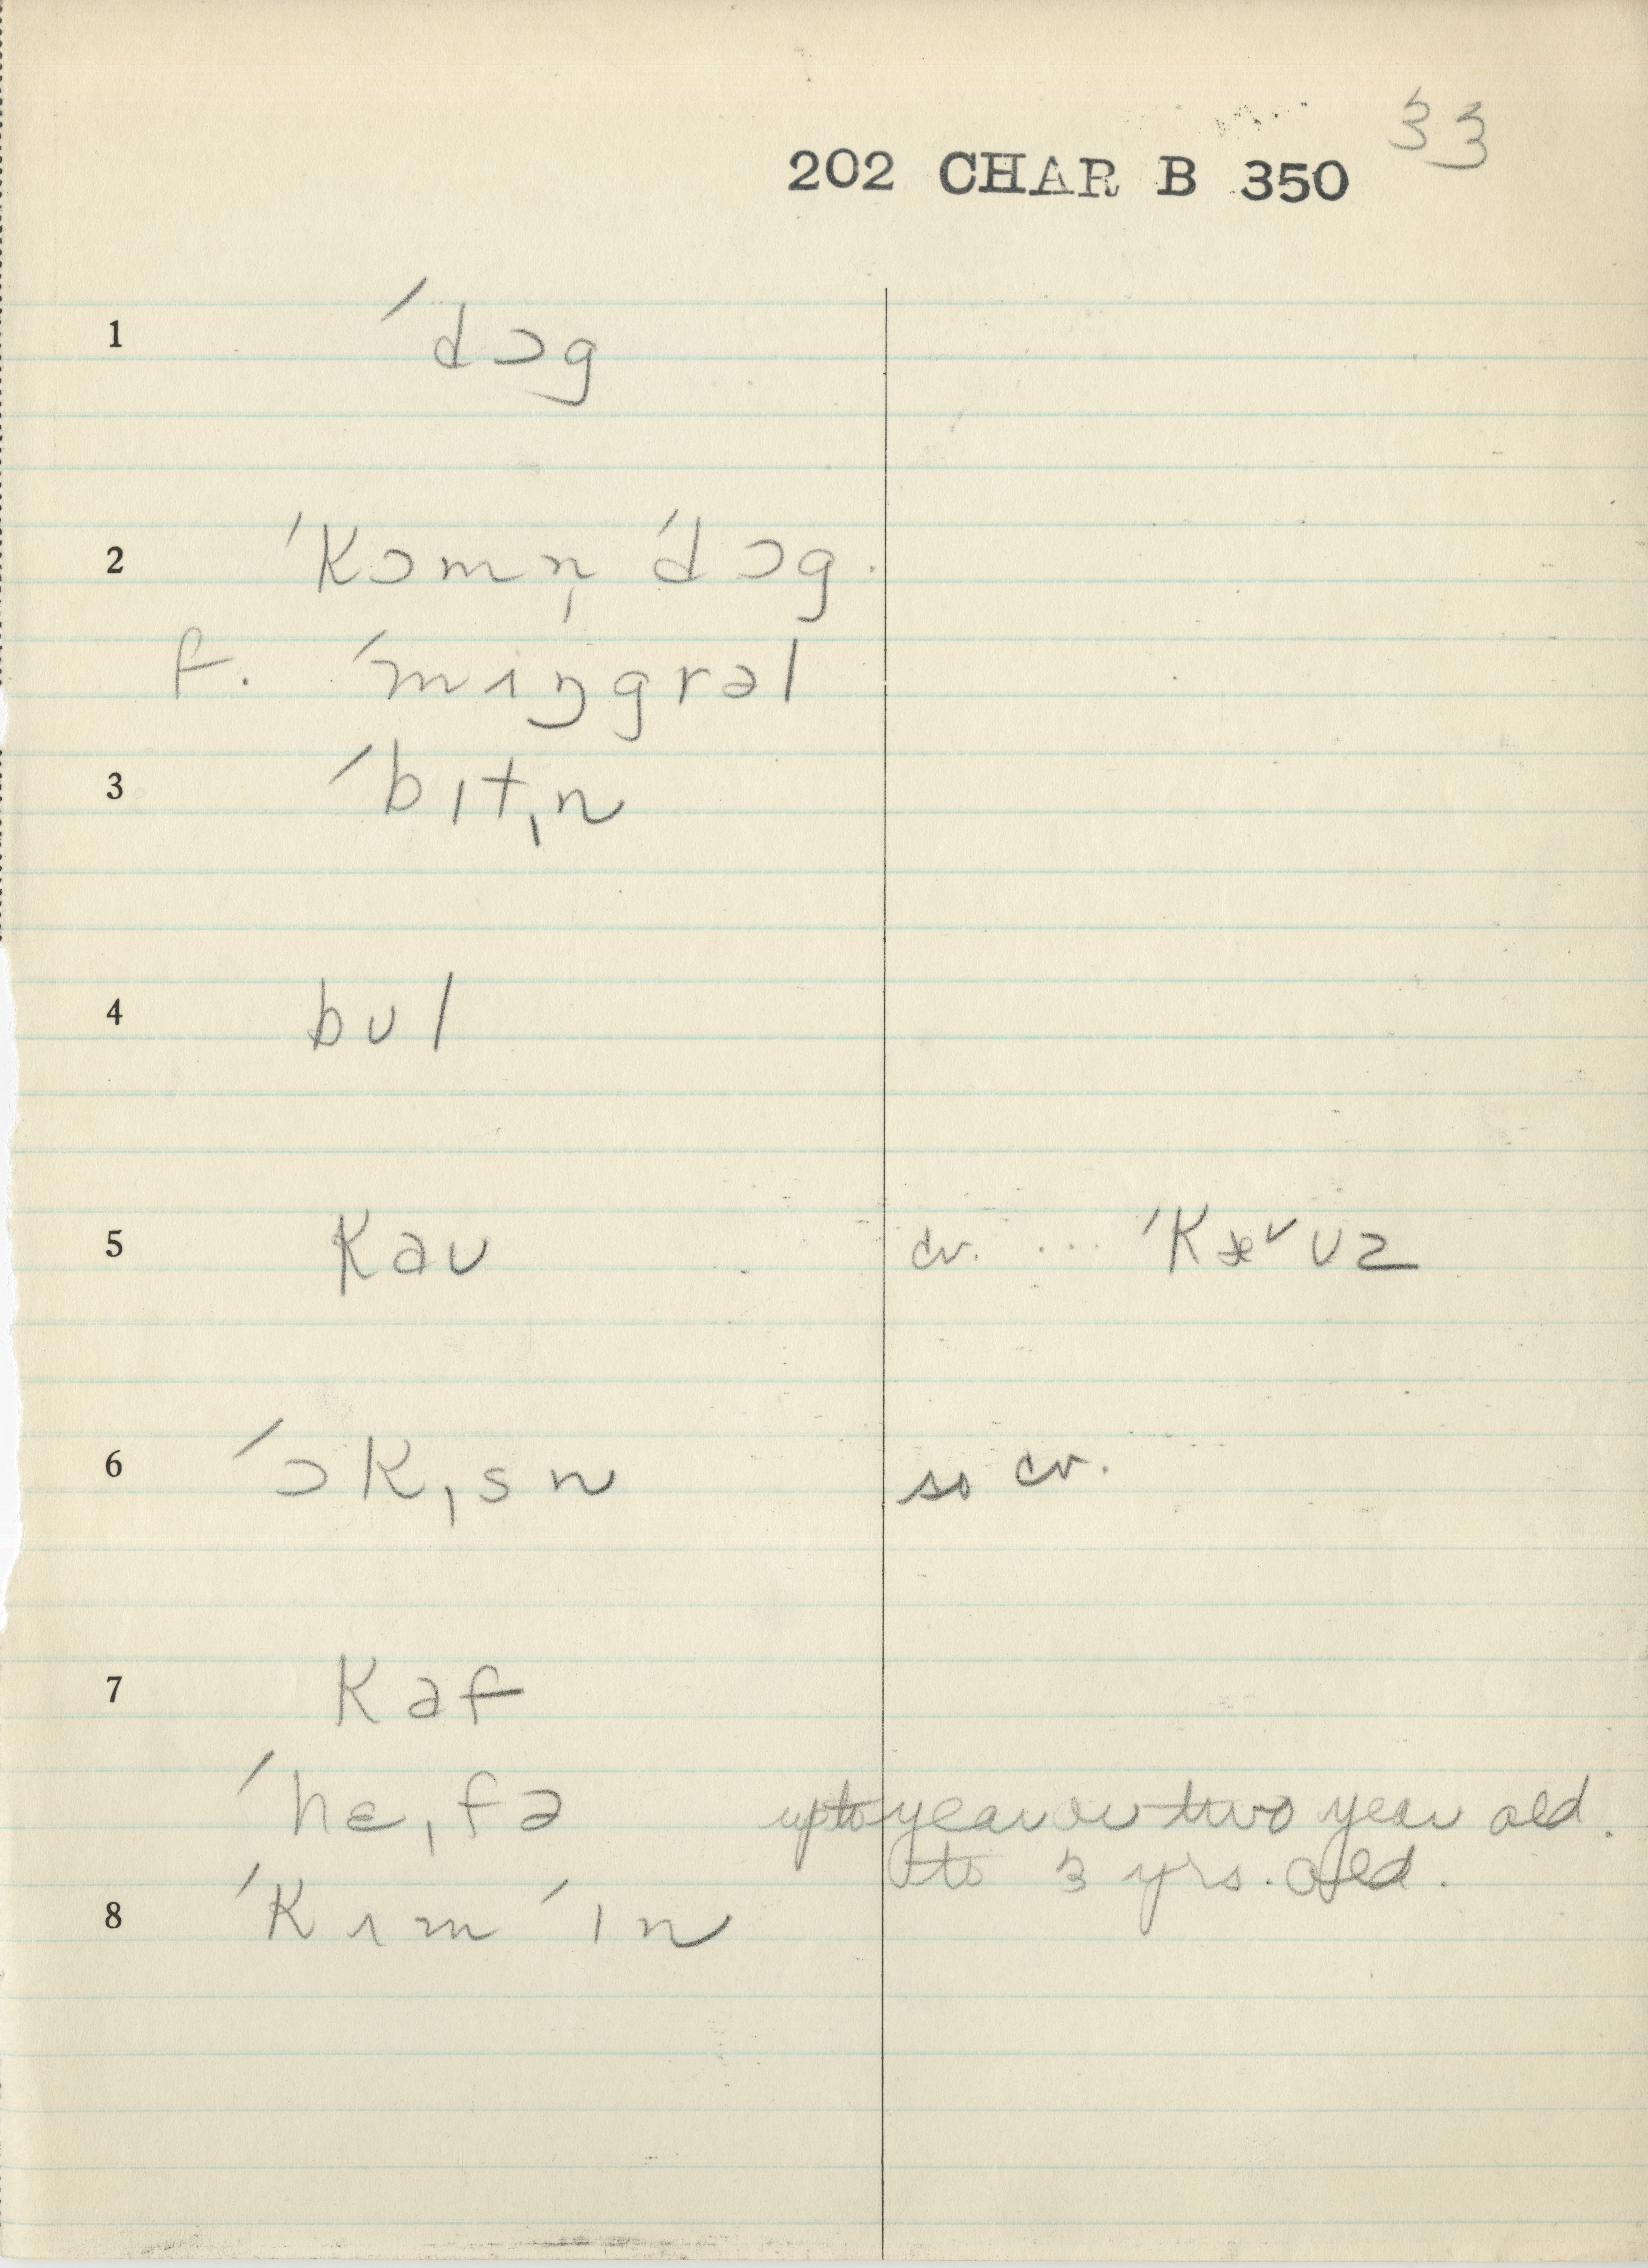 33
202 CHAR B 350
1 ˈdɔg
2 ˈkɔmn̩ ˈdɔg.
f. ˈmɪŋgrəl
3 ˈbɪtˌn
4 bʊl
5 kaʊ cv. ... ˈkæ˅ʊz
6 ˈɔkˌsn so cv.
7 kaf
ˈhɛˌfə up to year or two year old.
to 3 yrs. old.
8 ˈkɪm ˈɪn